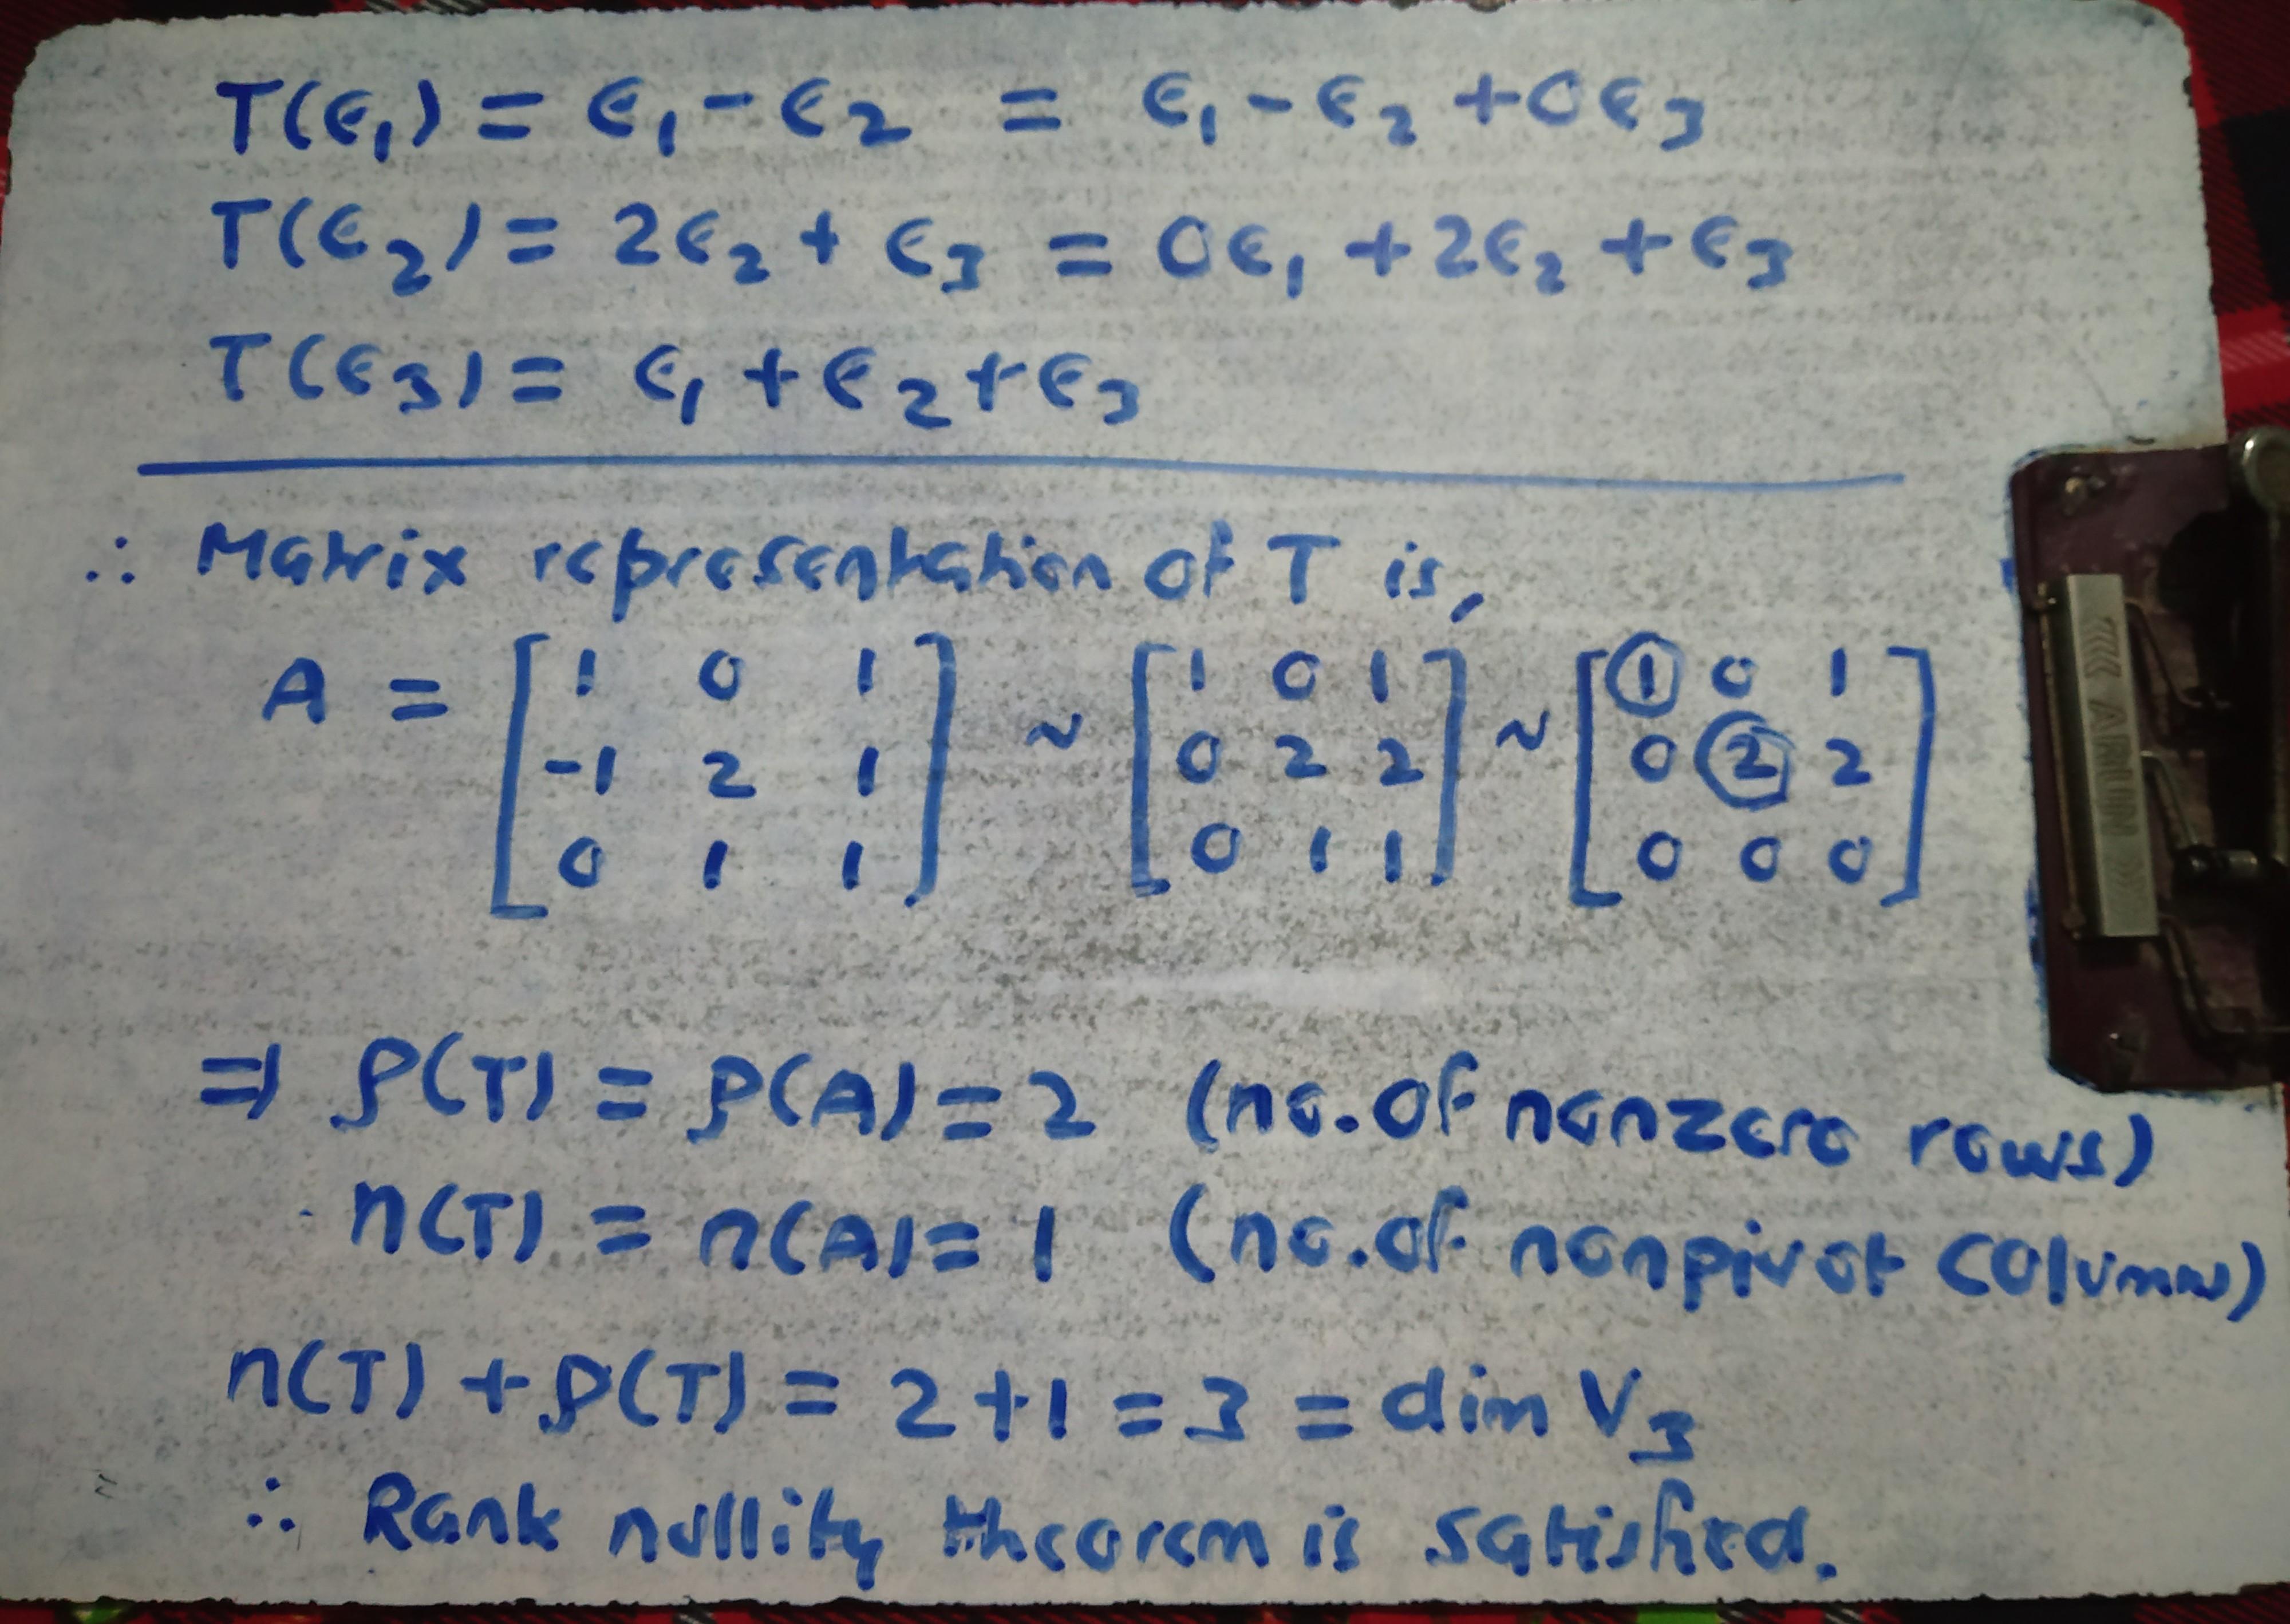 T(e₁) = e₁ - e₂ = e₁ - e₂ + 0e₃
T(e₂) = 2e₂ + e₃ = 0e₁ + 2e₂ + e₃
T(e₃) = e₁ + e₂ + e₃
∴ Matrix representation of T is,
A = [1 0 1; -1 2 1; 0 1 1] ~ [1 0 1; 0 2 2; 0 1 1] ~ [① 0 1; 0 ② 2; 0 0 0]
⇒ ρ(T) = ρ(A) = 2 (no. of nonzero rows)
n(T) = n(A) = 1 (no. of nonpivot columns)
n(T) + ρ(T) = 2 + 1 = 3 = dim V₃
∴ Rank nullity theorem is satisfied.
<<< ARUN >>>